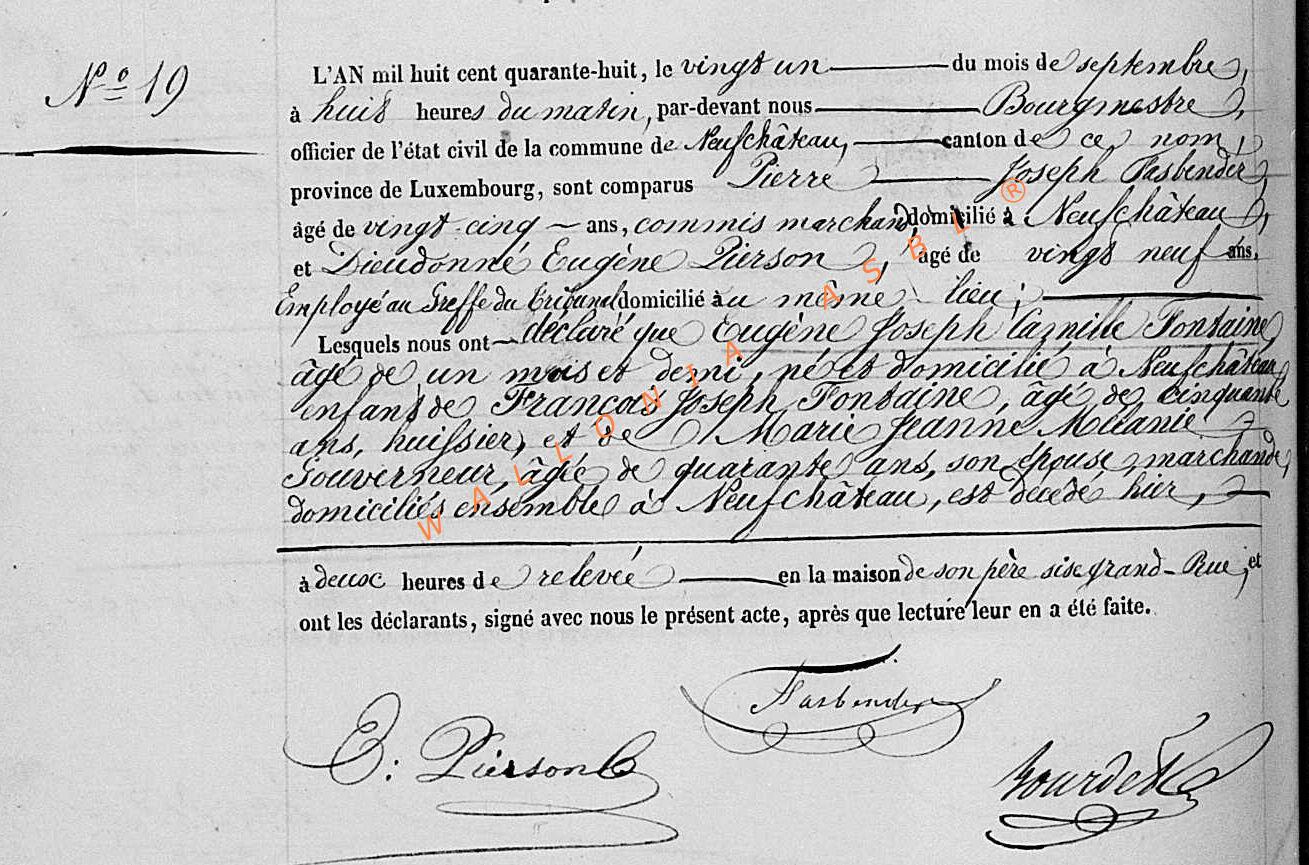 N.o 19
L'AN mil huit cent quarante-huit, le vingt un du mois de septembre,
à huit heures du matin, par-devant nous Bourgmestre,
officier de l'état civil de la commune de Neufchâteau, canton de ce nom,
province de Luxembourg, sont comparus Pierre Joseph Fasbender,
âgé de vingt-cinq ans, commis marchand, domicilié à Neufchâteau,
et Dieudonné Eugène Pierson, âgé de vingt neuf ans,
Employé au Greffe du Tribunal domicilié au même lieu;
Lesquels nous ont déclaré que Eugène Joseph Camille Fontaine,
âgé de un mois et demi, né et domicilié à Neufchâteau,
enfant de François Joseph Fontaine, âgé de cinquante
ans, huissier, et de Marie Jeanne Mélanie
Gouverneur, âgée de quarante ans, son épouse, marchande,
domiciliés ensemble à Neufchâteau, est décédé hier,
à deux heures de relevée en la maison de son père sise grand-Rue, et
ont les déclarants, signé avec nous le présent acte, après que lecture leur en a été faite.
Fasbender
E: Pierson
Bourdet
WALLONIA ASBL ®